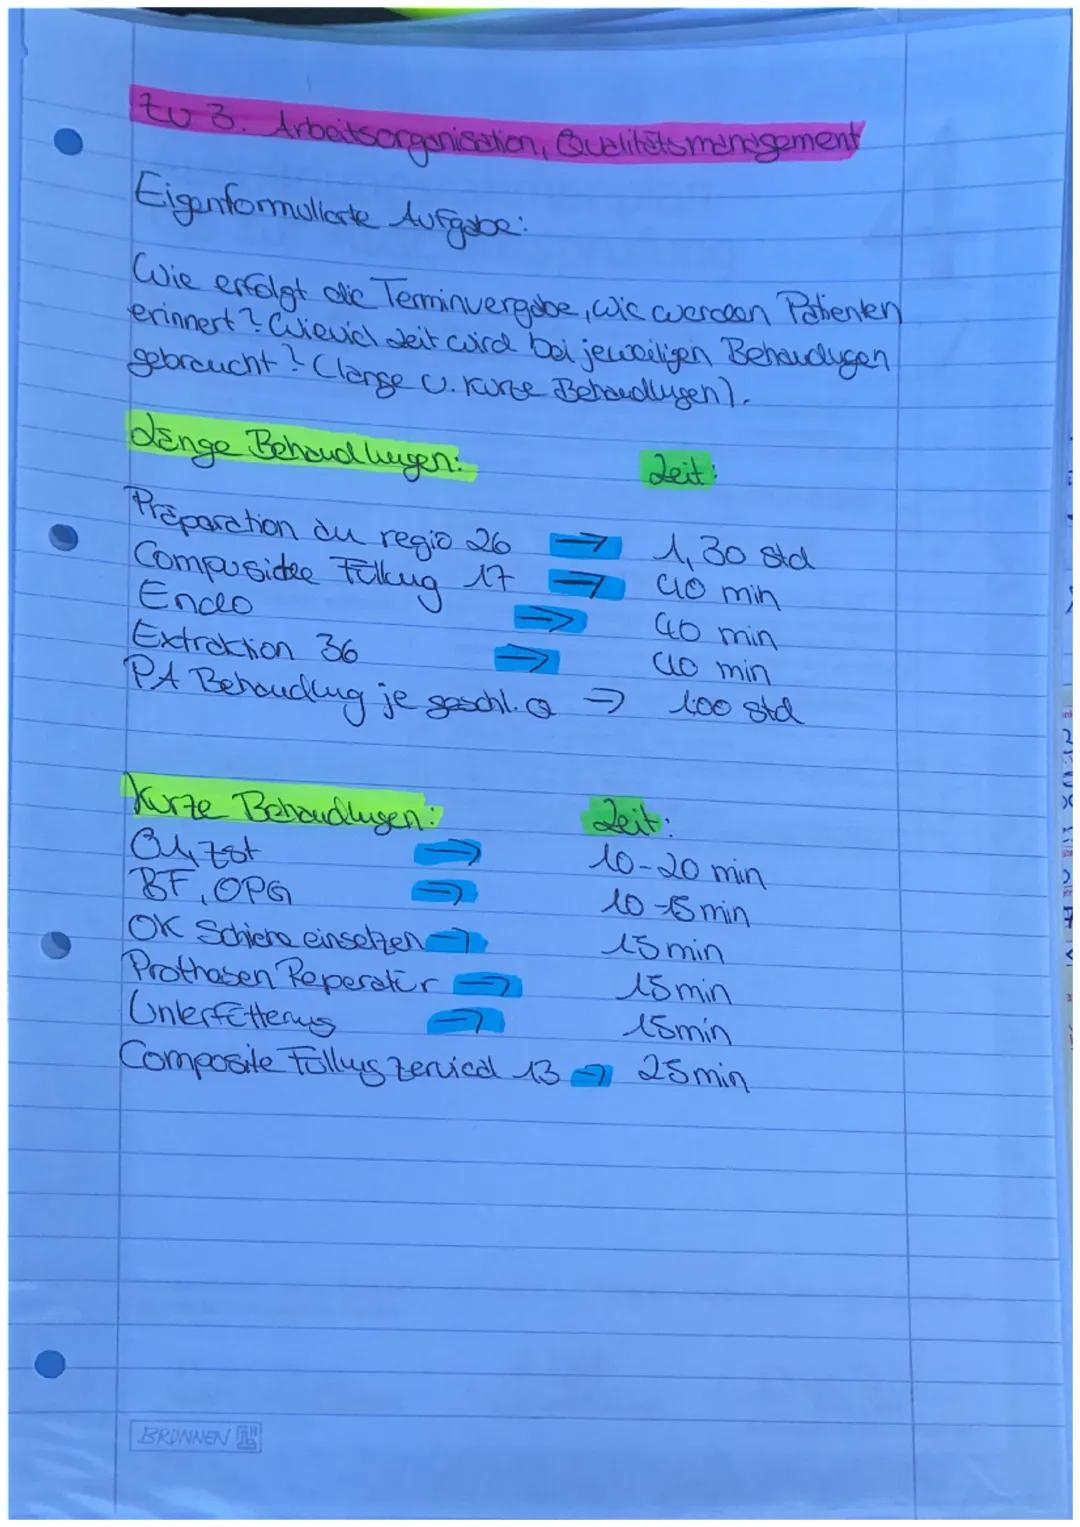 zu 3. Arbeitsorganisation, Qualitätsmanagement
Eigenformulierte Aufgabe:
Wie erfolgt die Terminvergabe, wie werden Patienten
erinnert? Wieviel Zeit wird bei jeweiligen Behandlugen
gebraucht? (lange u. kurze Behandlugen).
Länge Behandlungen: Zeit:
Präparation du regio 26 ⇒ 1,30 std
Füllung 17 ⇒ 40 min
Endo ⇒ 40 min
Extraktion 36 ⇒ 40 min
PA Behandlug je geschl. Q ⇒ 1.00 std
Kurze Behandlugen: Zeit:
01, zst ⇒ 10-20 min
BF, OPG ⇒ 10-15 min
OK Schiene einsetzen ⇒ 15 min
Prothesen Reperatur ⇒ 15 min
Unterfütterung ⇒ 15 min
Composite Füllung zervical 13 ⇒ 25 min
BRUNNEN